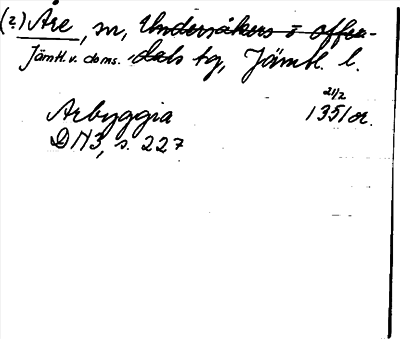 (2) Åre, sn, Undersåkers o offer-
Jämtl. v. doms. dals tg, Jämtl. l.
21/2
Arbyggia 1351 or.
DN3, s. 227